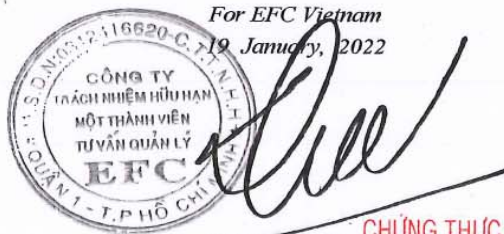 For EFC Vietnam
19 January, 2022
M.S.D.N:0312416620-C.T.T.N.H.H
CÔNG TY
TRÁCH NHIỆM HỮU HẠN
MỘT THÀNH VIÊN
TƯ VẤN QUẢN LÝ
EFC
QUẬN 1 - T.P HỒ CHÍ MINH
CHỨNG THỰC